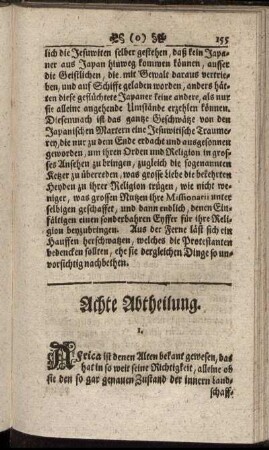 (o) 155
lich die Jesuwiten selber gestehen, daß kein Japa-
ner aus Japan hinweg kommen können, ausser
die Geistlichen, die mit Gewalt daraus vertrie-
ben, und auf Schiffe geladen worden, anders hät-
ten diese geflüchtete Japaner keine andere, als nur
sie alleine angehende Umstände erzehlen können.
Diesemnach ist das gantze Geschwätz von den
Japanischen Martern eine Jesuwitische Traume-
rey, die nur zu dem Ende erdacht und ausgesonnen
geworden, um ihren Orden und Religion in gros-
ses Ansehen zu bringen, zugleich die sogenannten
Ketzer zu überreden, was grosse Liebe die bekehrten
Heyden zu ihrer Religion trügen, wie nicht we-
niger, was grossen Nutzen ihre Missionarii unter
selbigen geschaffet, und dann endlich denen Ein-
fältigen einen sonderbahren Eyffer für ihre Reli-
gion beyzubringen. Aus der Ferne läst sich ein
Hauffen herschwatzen, welches die Protestanten
bedencken sollten, ehe sie dergleichen Dinge so un-
vorsichtig nachbethen.
Achte Abtheilung.
1.
AFrica ist denen Alten bekant gewesen, das
hat in so weit seine Richtigkeit, alleine ob
sie den so gar genauen Zustand der innern Land-
schaff-